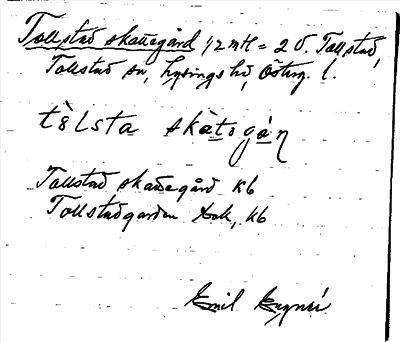 Tollstad skattegård 1/2 mtl = 2 i Tollstad,
Tollstad sn, Lysings hd, Österg. l.
tɔ̀lsta skàtogá̱n
Tollstad skattegård kb
Tollstadgården Eck, kb
Emil